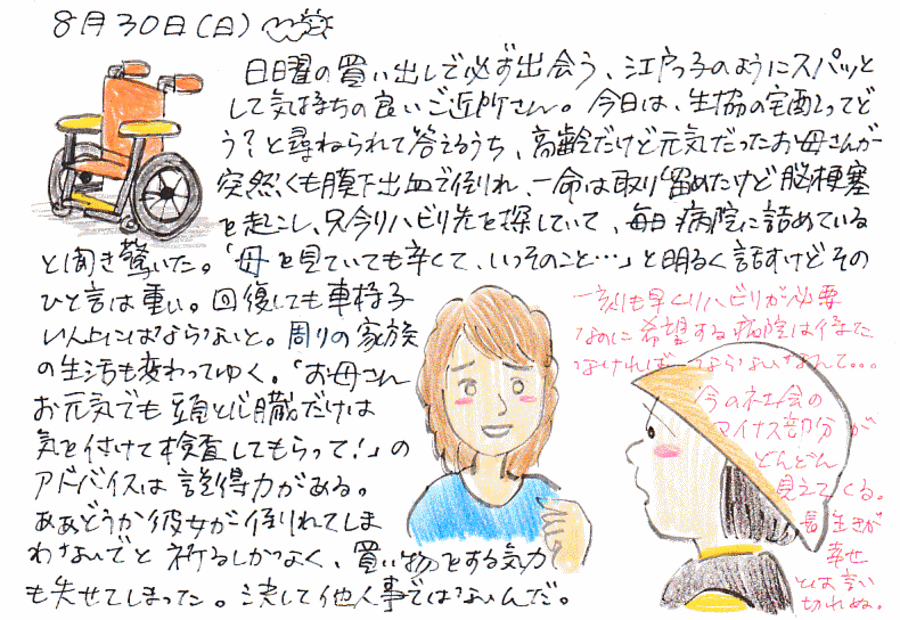 8月30日(日)
日曜の買い出しで必ず出会う、江戸っ子のようにスパッと
して気持ちの良いご近所さん。今日は、生協の宅配ってど
う?と尋ねられて答えるうち、高齢だけど元気だったお母さんが
突然くも膜下出血で倒れ、一命は取り留めたけど脳梗塞
を起こし、只今リハビリ先を探していて、毎日病院に詰めている
と聞き驚いた。「母を見ていても辛くて、いっそのこと…」と明るく話すけどその
ひと言は重い。回復しても車椅子
以上にはならないと。周りの家族
の生活も変わってゆく。「お母さん
お元気でも頭と心臓だけは
気を付けて検査してもらって!」の
アドバイスは説得力がある。
ああどうか彼女が倒れてしま
わないでと祈るしかなく、買い物をする気力
も失せてしまった。決して他人事ではないんだ。
一刻も早くリハビリが必要
なのに希望する病院は待た
なければならないなんて...
今の社会の
マイナス部分が
どんどん
見えてくる。
長生きが
幸せ
とは言い
切れぬ。